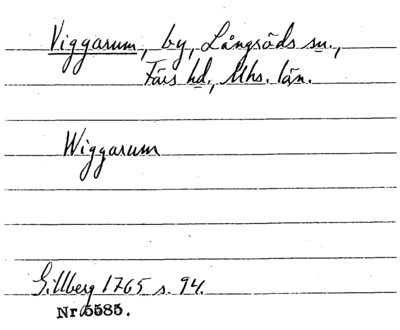 Viggarum, by, Långröds sn.,
Färs hd., Mhs. län.
Wiggarum
Gillberg 1765 s. 94.
Nr 5585.